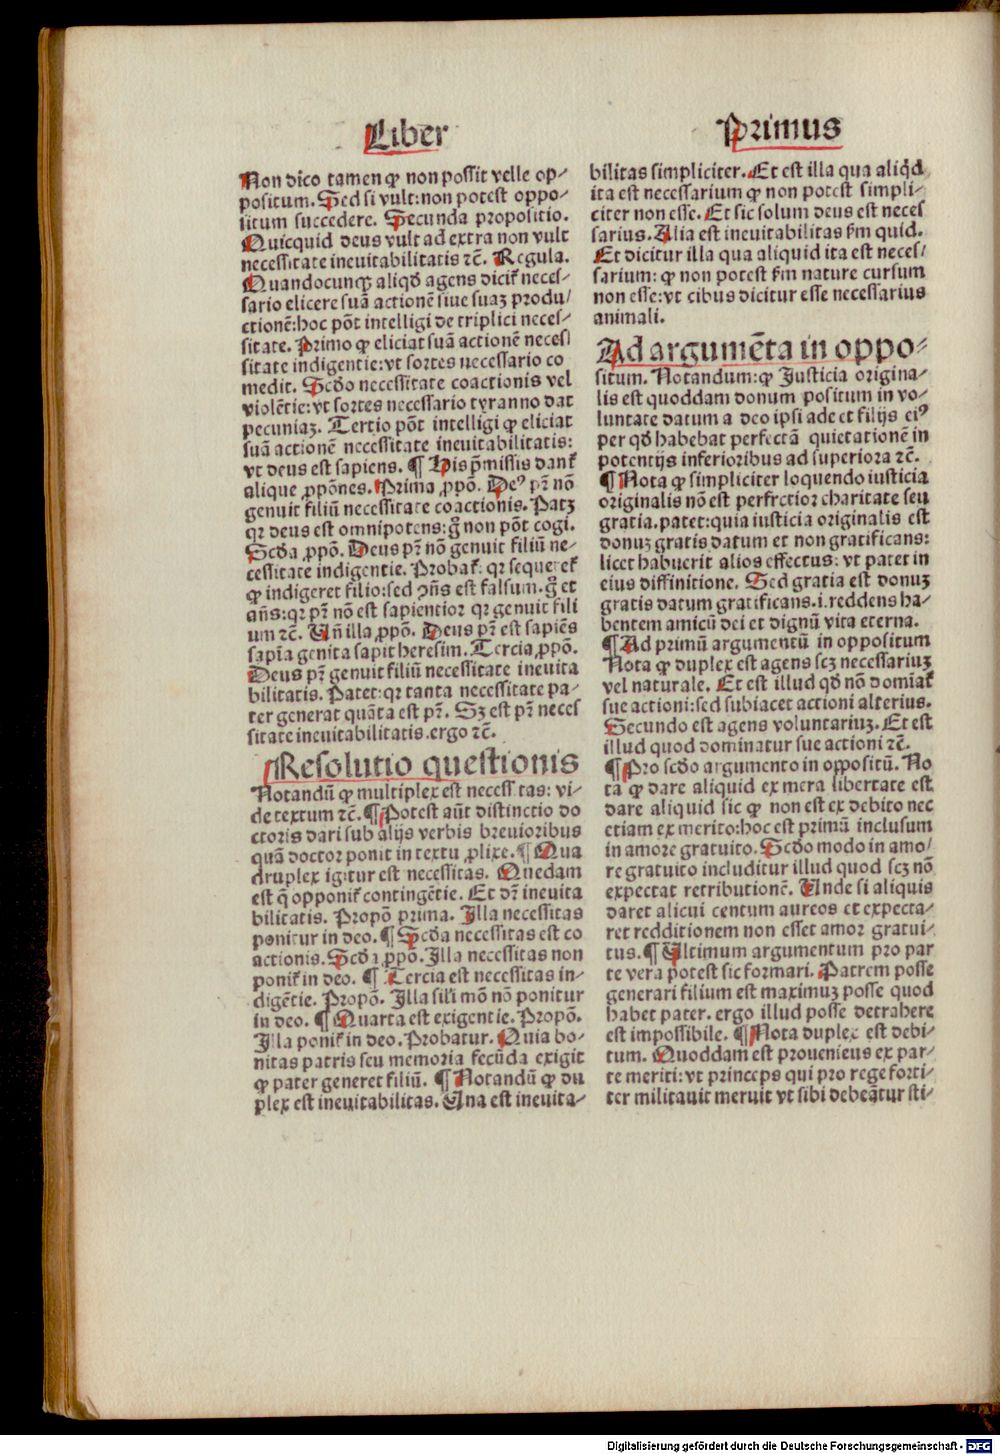 Liber
Primus
Non dīco tamen ꝙ non possit velle op⸗
positum. Sed si vult:non potest oppo⸗
situm succedere. Secunda propositio.
Quicquid deus vult ad extra non vult
necessitate ineuitabilitatis ⁊c̄. Regula.
Quandocunqꝫ aliqđ agens dicit̄ neces⸗
sario elicere suā actionē siue suaꝫ produ⸗
ctionē:hoc pōt intelligi de triplici neces⸗
sitate. Primo ꝙ eliciat suā actionē necess
sitate indigentie:vt sortes necessario co
medit. Scđo necessitate coactionis vel
violētie:vt sortes necessario tyranno dat
pecuniaꝫ. Tertio pōt intelligi ꝙ eliciat
suā actionē necessitate ineuitabilitatis:
vt deus est sapiens. ¶ His p̄missis dant̄
alique ꝓpōnes. Prima ꝓpō. Deꝰ pr̄ nō
genuit filiū necessitate coactionis. Patꝫ
qꝛ deus est omnipotens:g̊ non pōt cogi.
Scđa ꝓpō. Deus pr̄ nō genuit filiū ne⸗
cessitate indigentie. Probat̄: qꝛ sequeret̄
ꝙ indigeret filio:sed ꝯn̄s est falsum.g̊ et
an̄s:qꝛ pr̄ nō est sapientior qꝛ genuit fili
um ⁊c̄. Un̄ illa ꝓpō. Deus pr̄ est sapiēs
sapīa genita sapit heresim. Tercia ꝓpō.
Deus pr̄ genuit filiū necessitate ineuita
bilitatis. Patet:qꝛ tanta necessitate pa⸗
ter generat quāta est pr̄. Sꝫ est pr̄ neces
sitate ineuitabilitatis.ergo ⁊c̄.
Resolutio questionis
Notandū ꝙ multiplex est necessitas: vi⸗
de textum ⁊c̄. ¶ Potest aūt distinctio do
ctoris dari sub alijs verbis breuioribus
quā doctor ponit in textu ꝓlixe. ¶ Qua
druplex igitur est necessitas. Quedam
est q̄ opponit̄ contingētie. Et dr̄ ineuita
bilitatis. Propō prima. Illa necessitas
ponitur in deo. ¶ Scđa necessitas est co
actionis. Scđa ꝓpō. Illa necessitas non
ponit̄ in deo. ¶ Tercia est necessitas in⸗
digētie. Propō. Illa sīli mō nō ponitur
in deo. ¶ Quarta est exigentie. Propō.
Illa ponit̄ in deo. Probatur. Quia bo⸗
nitas patris seu memoria fecūda exigit
ꝙ pater generet filiū. ¶ Notandū ꝙ du
plex est ineuitabilitas. Una est ineuita⸗
bilitas simpliciter. Et est illa qua aliqđ
ita est necessarium ꝙ non potest simpli⸗
citer non esse. Et sic solum deus est neces
sarius. Alia est ineuitabilitas ẜm quid.
Et dicitur illa qua aliquid ita est neces⸗
sarium: ꝙ non potest ẜm nature cursum
non esse:vt cibus dicitur esse necessarius
animali.
Ad argumēta in oppo⸗
situm. Notandum:ꝙ Justicia origina⸗
lis est quoddam donum positum in vo⸗
luntate datum a deo ipsi ade et filijs eiꝰ
per qđ habebat perfectā quietationē in
potentijs inferioribus ad superiora ⁊c̄.
¶ Nota ꝙ simpliciter loquendo iusticia
originalis nō est perfectior charitate seu
gratia.patet:quia iusticia originalis est
donuꝫ gratis datum et non gratificans:
licet habuerit alios effectus: vt patet in
eius diffinitione. Sed gratia est donuꝫ
gratis datum gratificans.i.reddens ha⸗
bentem amicū dei et dignū vita eterna.
¶ Ad primū argumentū in oppositum
Nota ꝙ duplex est agens scꝫ necessariuꝫ
vel naturale. Et est illud qđ nō domīat̄
sue actioni:sed subiacet actioni alterius.
Secundo est agens voluntariuꝫ. Et est
illud quod dominatur sue actioni ⁊c̄.
¶ Pro scđo argumento in oppositū. No
ta ꝙ dare aliquid ex mera libertate est
dare aliquid sic ꝙ non est ex debito nec
etiam ex merito:hoc est primū inclusum
in amore gratuito. Scđo modo in amo⸗
re gratuito includitur illud quod scꝫ nō
expectat retributionē. Unde si aliquis
daret alicui centum aureos et expecta⸗
ret redditionem non esset amor gratui⸗
tus. ¶ Ultimum argumentum pro par
te vera potest sic formari. Patrem posse
generari filium est maximuꝫ posse quod
habet pater. ergo illud posse detrahere
est impossibile. ¶ Nota duplex est debi⸗
tum. Quoddam est proueniens ex par⸗
te meriti: vt princeps qui pro rege forti⸗
ter militauit meruit vt sibi debeātur sti⸗
Digitalisierung gefördert durch die Deutsche Forschungsgemeinschaft - DFG